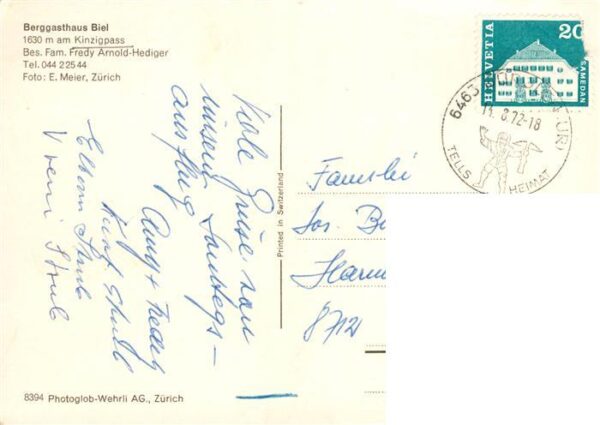 Berggasthaus Biel
1630 m am Kinzigpass
Bes. Fam. Fredy Arnold-Hediger
Tel. 044 2 25 44
Foto: E. Meier, Zürich
Viele Grüsse von
unserm Sonntags-
ausflug
Anny + Fredy
Kurt Strub
Eltern Strub
Vreni Strub
8394 Photoglob-Wehrli AG., Zürich
Printed in Switzerland
HELVETIA
20
SAMEDAN
6463
(URI)
8.72-18
TELLS HEIMAT
Familie
Jos. B
8712